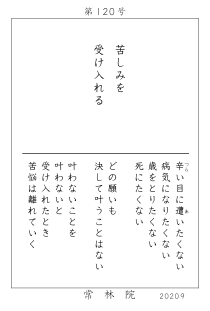 第120号
苦しみを
受け入れる
辛い目に遭いたくない
病気になりたくない
歳をとりたくない
死にたくない
どの願いも
決して叶うことはない
叶わないことを
叶わないと
受け入れたとき
苦悩は離れていく
常林院
2020.9